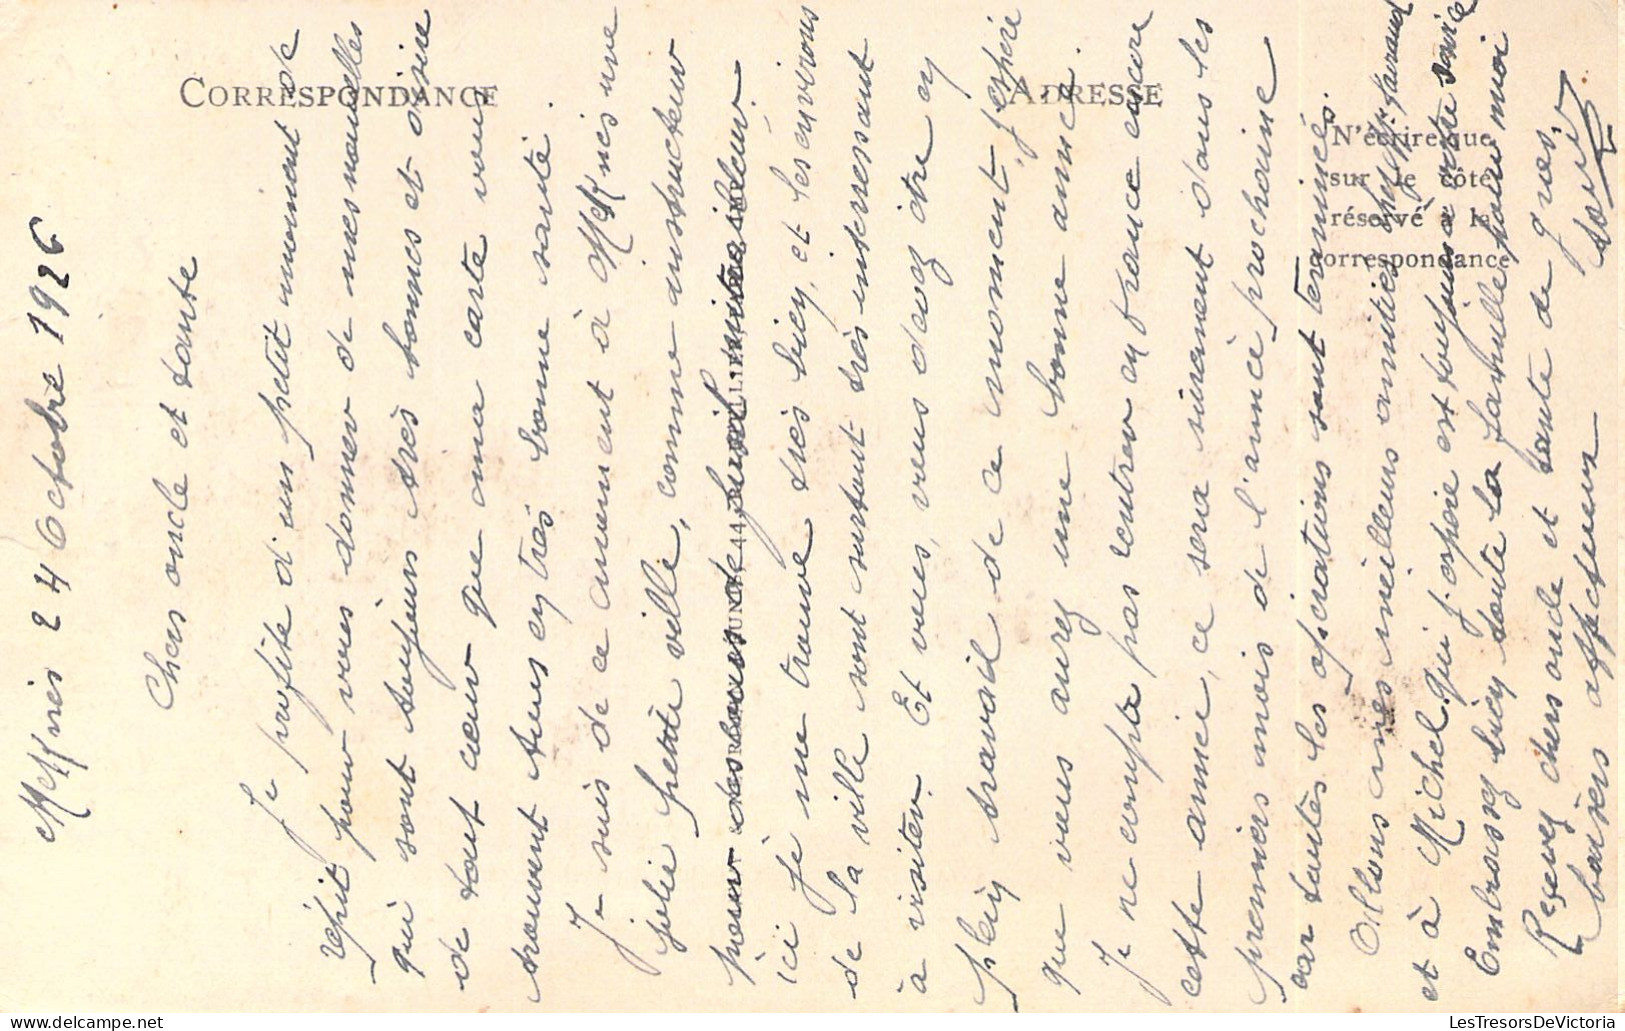 Meknès 24 Octobre 1926
Chers oncle et tante
Je profite d'un petit moment de
répit pour vous donner de mes nouvelles
qui sont toujours très bonnes et désire
de tout cœur que ma carte vous
trouvent tous en très bonne santé.
Je suis de ce moment à Meknès une
jolie petite ville, comme instructeur
pour des cours de fusil mitrailleur.
ici je me trouve très bien, et les environs
de la ville sont surtout très interressant
à visiter. Et vous, vous devez être en
plein travail de ce moment, j'espère
que vous aurez une bonne année.
Je ne compte pas rentrer en France encore
cette année, ce sera surement dans les
premiers mois de l'année prochaine
car toutes les opérations sont terminés.
Allons mes meilleurs amitiés
et à Michel qui j'espère est toujours à votre service
Embrassez bien toute la famille pour moi
Recevez chers oncle et tante de gros
baisers affectueux
CORRESPONDANCE
ADRESSE
N'écrire que
sur le côté
réservé à la
correspondance
LesTresorsDeVictoria
delcampe.net